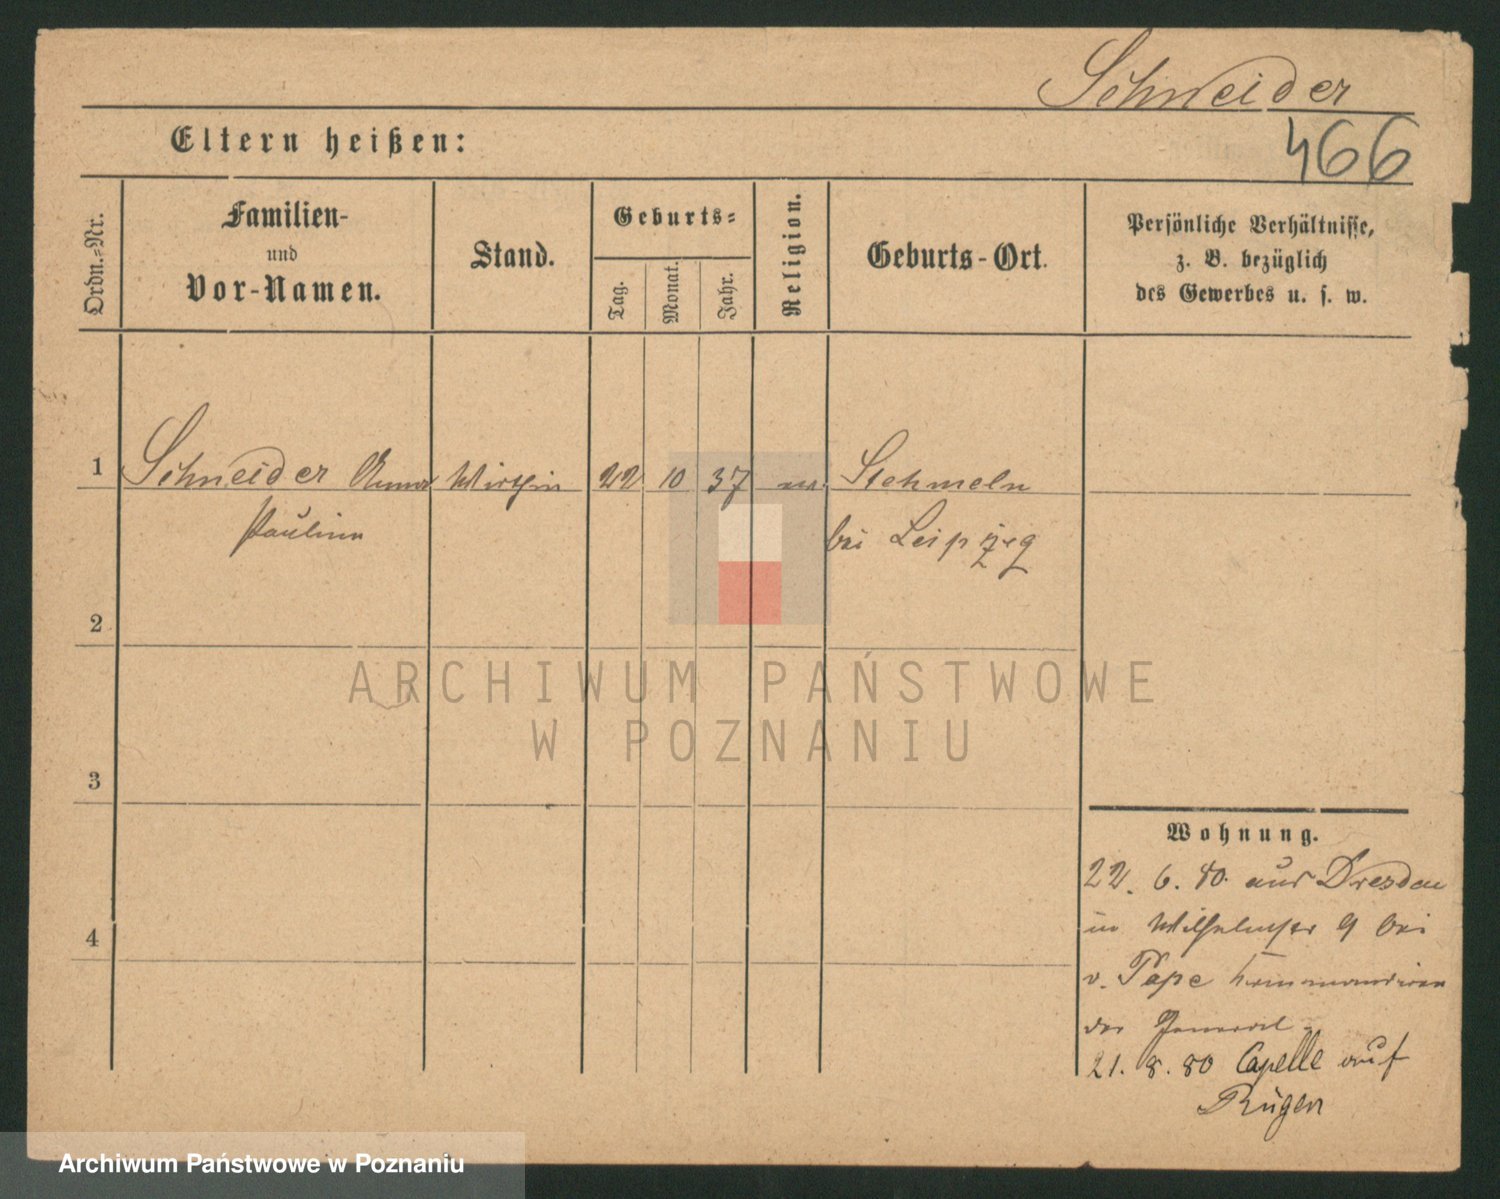 Schneider
466
Eltern heißen:
Ordn.-Nr.
Familien-
und
Vor-Namen.
Stand.
Geburts-
Tag.
Monat.
Jahr.
Religion.
Geburts-Ort.
Persönliche Verhältnisse,
z. B. bezüglich
des Gewerbes u. s. w.
1 Schneider Anna Wirthin 22 10 37 Stehmeln
Pauline bei Leipzig
2
3
4
Wohnung.
22. 6. 80. aus Dresden
in Wilhelmstr 9 bei
v. Pape kommandiren
der General
21. 8. 80 Capelle auf
Rügen
ARCHIWUM PAŃSTWOWE
W POZNANIU
Archiwum Państwowe w Poznaniu